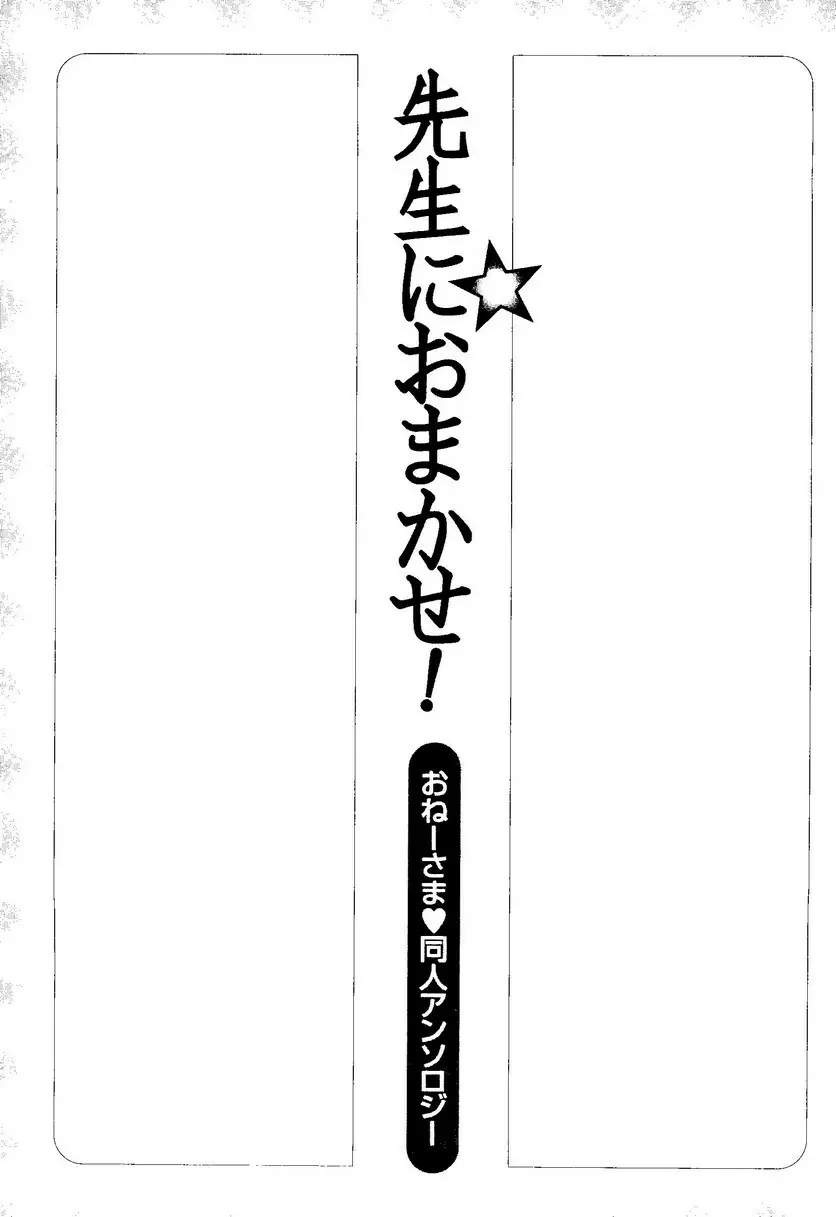 先生におまかせ!
おねーさま♥同人アンソロジー